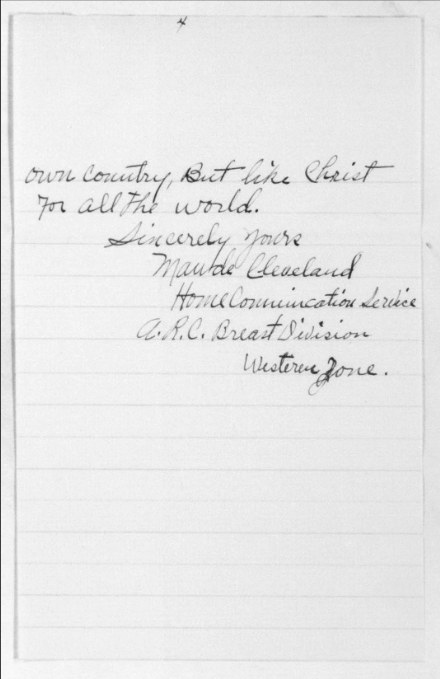 4
own country, But like Christ
for all the world.
Sincerely yours
Maude Cleveland
Home Communcation Service
A.R.C. Breast Division
Western Zone.